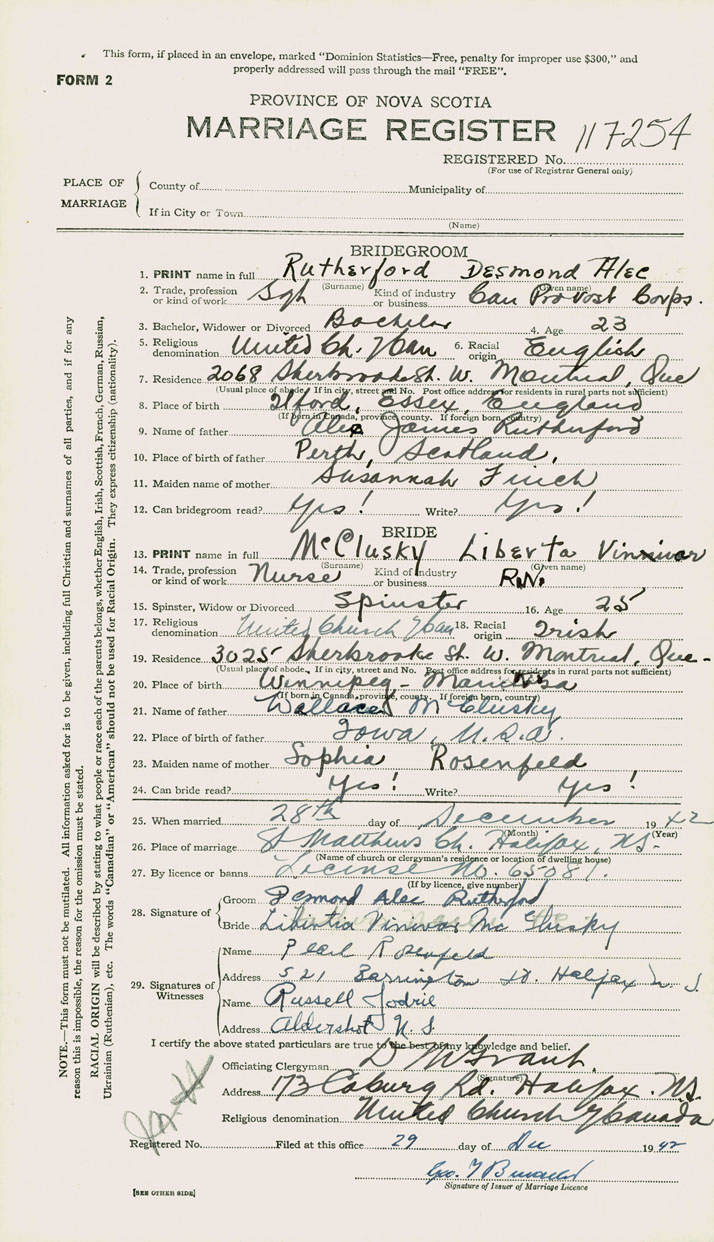 This form, if placed in an envelope, marked "Dominion Statistics—Free, penalty for improper use $300," and
properly addressed will pass through the mail "FREE".
FORM 2
PROVINCE OF NOVA SCOTIA
MARRIAGE REGISTER 117254
REGISTERED No.
(For use of Registrar General only)
PLACE OF MARRIAGE
County of Municipality of
If in City or Town
(Name)
BRIDEGROOM
1. PRINT name in full Rutherford Desmond Alec
(Surname) (Given name)
2. Trade, profession or kind of work Sgt Kind of industry or business Can Provost Corps.
3. Bachelor, Widower or Divorced Bachelor 4. Age 23
5. Religious denomination United Ch. of Can 6. Racial origin English
7. Residence 2068 Sherbrooke St. W. Montreal, Que
(Usual place of abode. If in city, street and No. Post office address for residents in rural parts not sufficient)
8. Place of birth Ilford, Essex, England
(If born in Canada, province, county. If foreign born, country)
9. Name of father Alex James Rutherford
10. Place of birth of father Perth, Scotland,
11. Maiden name of mother Susannah Finch
12. Can bridegroom read? Yes! Write? Yes!
BRIDE
13. PRINT name in full McClusky Liberta Vinnivar
(Surname) (Given name)
14. Trade, profession or kind of work Nurse Kind of industry or business R.N.
15. Spinster, Widow or Divorced Spinster 16. Age 25
17. Religious denomination United Church of Can 18. Racial origin Irish
19. Residence 3025 Sherbrooke St. W. Montreal, Que-
(Usual place of abode. If in city, street and No. Post office address for residents in rural parts not sufficient)
20. Place of birth Winnipeg - Manitoba
(If born in Canada, province, county. If foreign born, country)
21. Name of father Wallace McClusky
22. Place of birth of father Iowa, U.S.A.
23. Maiden name of mother Sophia Rosenfeld
24. Can bride read? Yes! Write? Yes!
25. When married 28th day of December 1942
(Month) (Year)
26. Place of marriage St Matthews Ch. Halifax, NS-
(Name of church or clergyman's residence or location of dwelling house)
27. By licence or banns License No. 65081.
(If by licence, give number)
28. Signature of
Groom Desmond Alec Rutherford
Bride Libertia Vinivar Mc Clusky
29. Signatures of Witnesses
Name Pearl Rosenfeld
Address 521 Barrington St. Halifax N S
Name Russell Jodrie
Address Aldershot N.S
I certify the above stated particulars are true to the best of my knowledge and belief.
Officiating Clergyman D M Grant.
(Signature)
Address 173 Coburg Rd. Halifax. NS.
Religious denomination United Church of Canada
Registered No. Filed at this office 29 day of Dec 1942
Geo.
Signature of Issuer of Marriage Licence
[SEE OTHER SIDE]
NOTE.—This form must not be mutilated. All information asked for is to be given, including full Christian and surnames of all parties, and if for any
reason this is impossible, the reason for the omission must be stated.
RACIAL ORIGIN will be described by stating to what people or race each of the parents belongs, whether English, Irish, Scottish, French, German, Russian,
Ukrainian (Ruthenian), etc. The words "Canadian" or "American" should not be used for Racial Origin. They express citizenship (nationality).